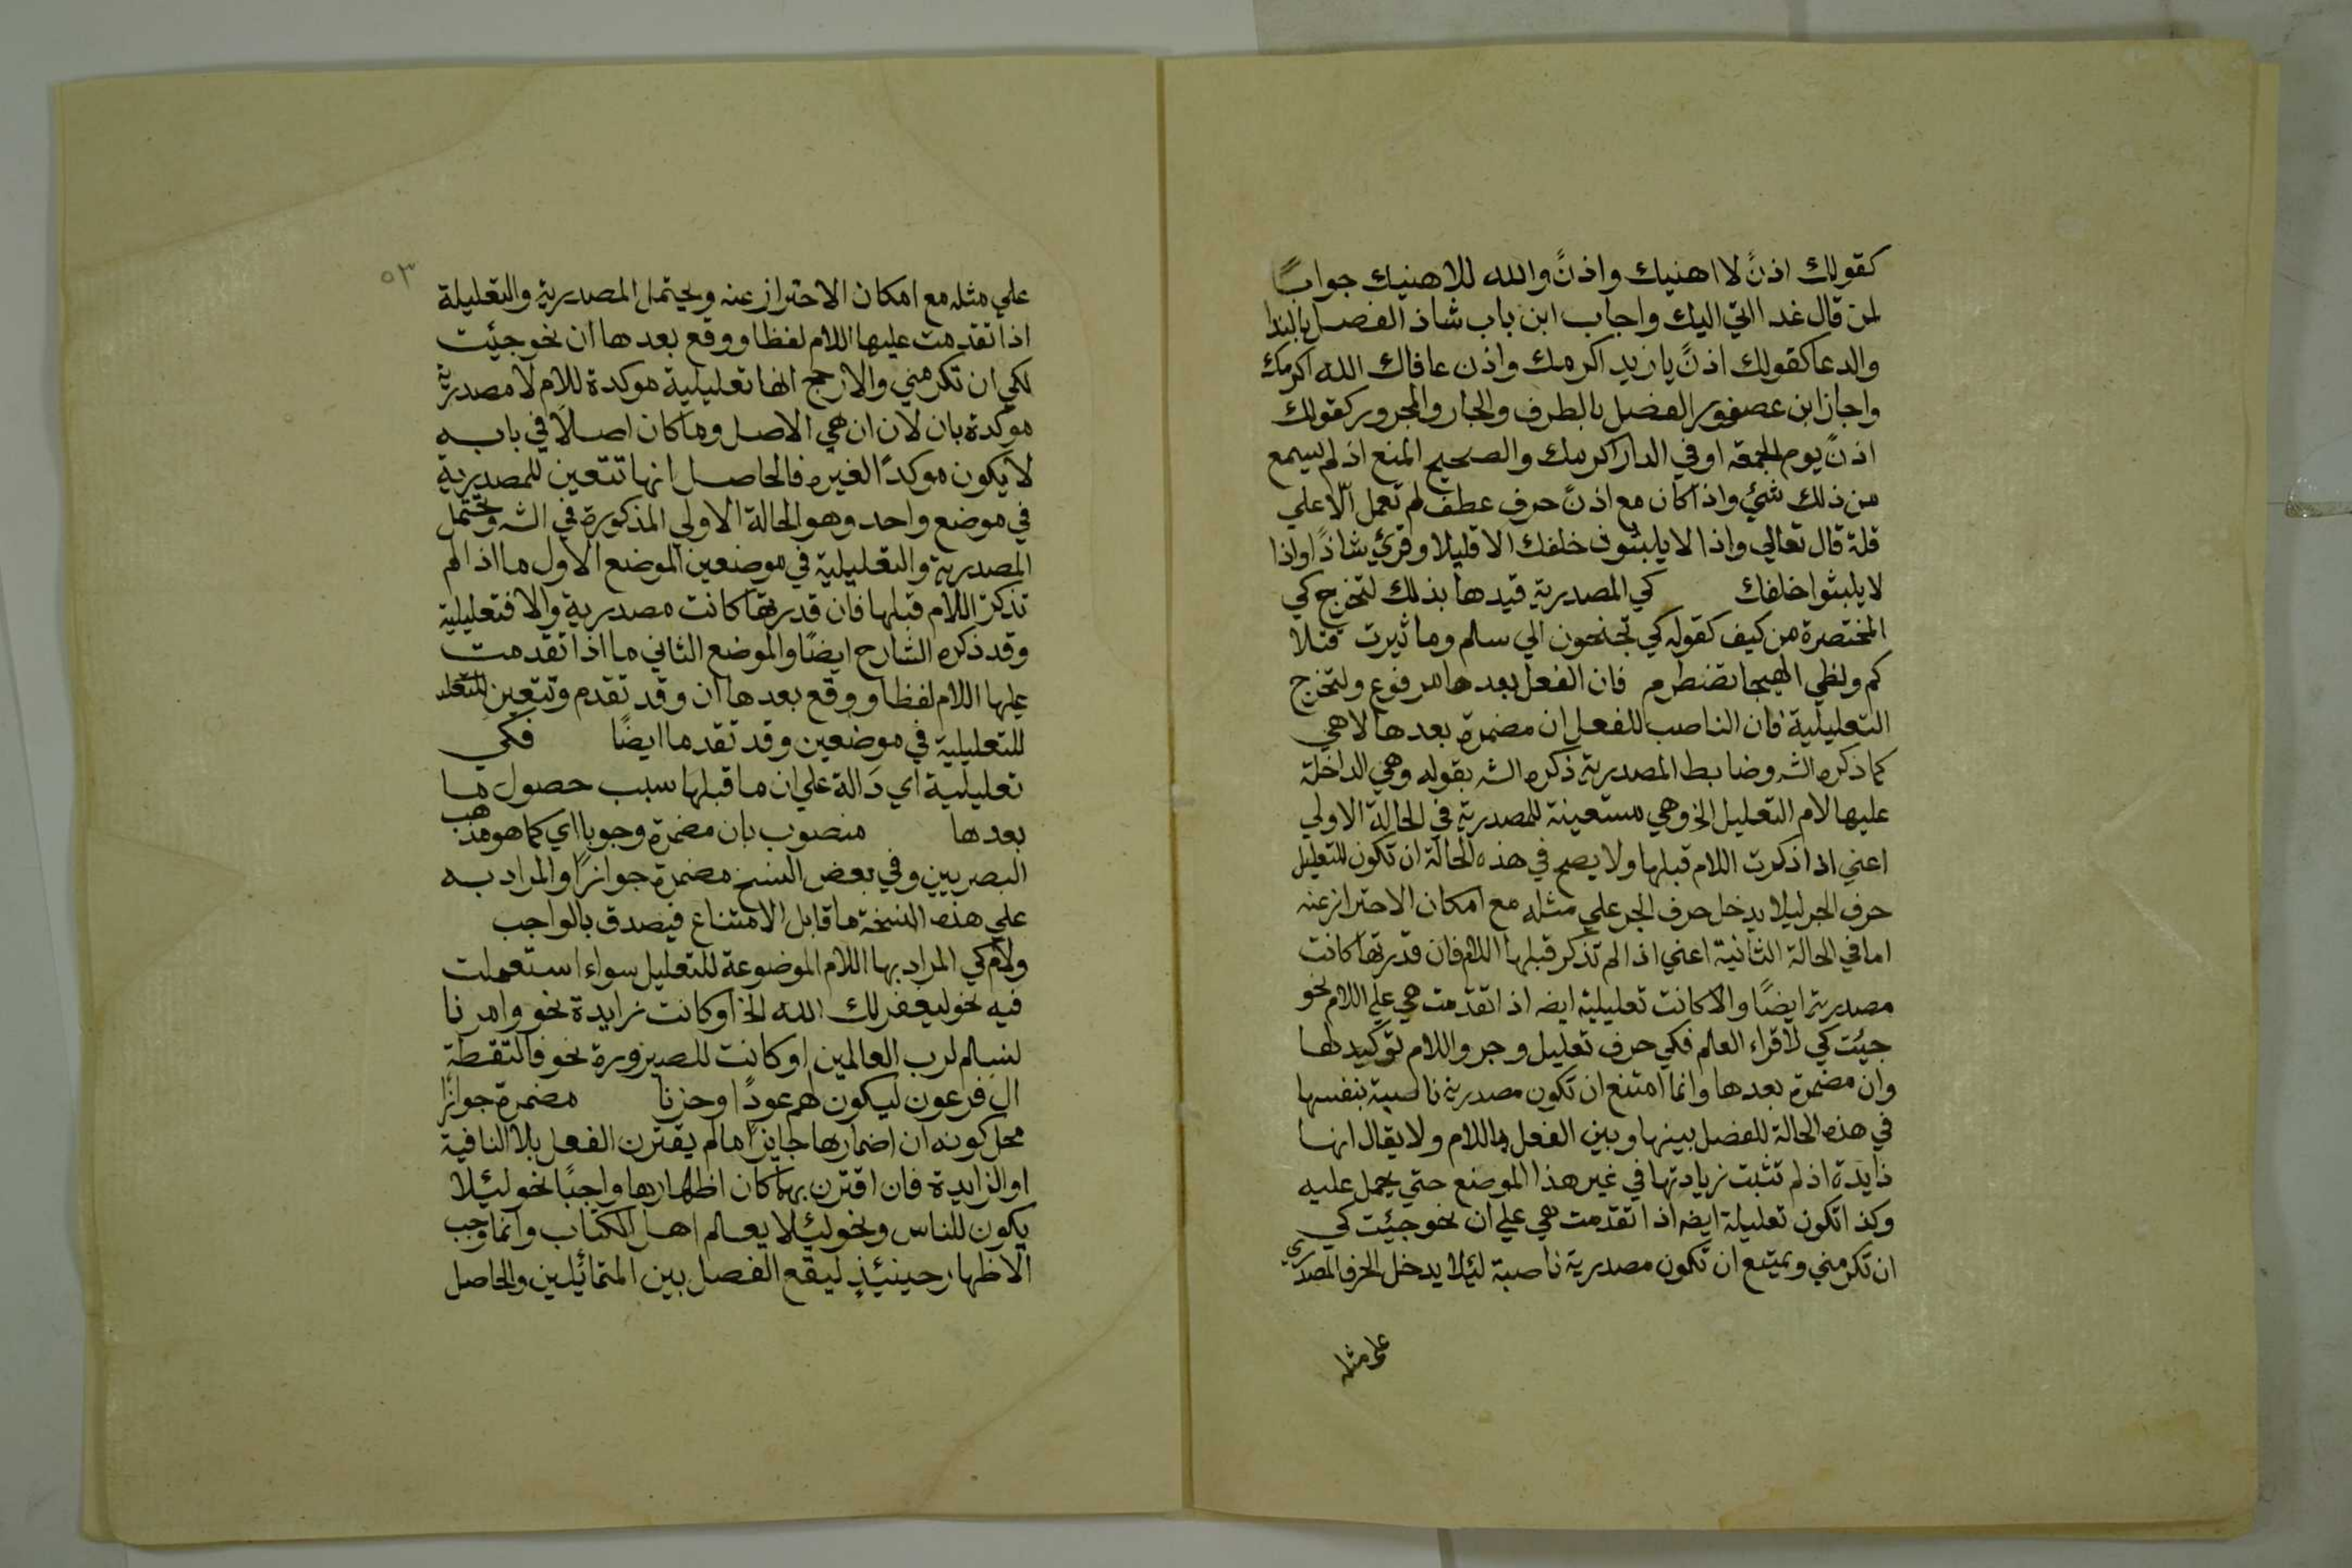 كقولك اذنً لا اهنيك واذنً والله للاهنيك جوابًا
لمن قال غدا اتي اليك واجاب ابن باب شاذ الفصل بالندا
والدعا كقولك اذنً يا زيد اكرمك واذن عافاك الله اكرمك
واجاز ابن عصفور الفصل بالظرف والجار والمجرور كقولك
اذنً يوم الجمعة او في الدار اكرمك والصحيح المنع اذ لم يسمع
من ذلك شئ واذا كان مع اذنً حرف عطف لم تعمل الا علي
قلة قال تعالي واذا لا يلبثون خلفك الا قليلا وقرئ شاذًا واذا
لا يلبثوا خلفك كي المصدرية قيدها بذلك لتخرج كي
المختصرة من كيف كقوله كي تجنحون الي سلم وما ثيرت قتلا
كم ولظي الهيجا تضطرم فان الفعل بعدها مرفوع ولتخرج
التعليلية فان الناصب للفعل ان مضمرة بعدها لا هي
كما ذكره الشه وضابط المصدرية ذكره الشه بقوله وهي الداخلة
عليها لام التعليل الخ وهي مستعينة للمصدرية في الحالة الاولي
اعني اذا ذكرت اللام قبلها ولا يصح في هذه الحالة ان تكون للتعليل
حرف الجر ليلا يدخل حرف الجر علي مثله مع امكان الاحتراز عنه
اما في الحالة الثانية اعني اذا لم تذكر قبلها اللام فان قدرتها كانت
مصدرية ايضًا والا كانت تعليلية ايضه اذا تقدمت هي علي اللام نحو
جيئت كي لاقراء العلم فكي حرف تعليل وجر واللام توكيد لها
وان مضمرة بعدها وانما امتنع ان تكون مصدرية ناصبة بنفسها
في هذه الحالة للفصل بينها وبين الفعل باللام ولا يقال انها
زايدة اذ لم تثبت زيادتها في غير هذا الموضع حتي يحمل عليه
وكذا تكون تعليلة ايضه اذا تقدمت هي علي ان نحو جيئت كي
ان تكرمني ويمتنع ان تكون مصدرية ناصبة ليئلا يدخل الحرف المصدري
علي مثله
٥٣
علي مثله مع امكان الاحتراز عنه ويحتمل المصدرية والتعليلة
اذا تقدمت عليها اللام لفظا ووقع بعدها ان نحو جيئت
لكي ان تكرمني والارجح انها تعليلية موكدة للام لا مصدرية
موكدة بان لان ان هي الاصل وما كان اصلاً في بابه
لا يكون موكدًا لغيره فالحاصل انها تتعين للمصدرية
في موضع واحد وهو الحالة الاولي المذكورة في الشه وتحتمل
المصدرية والتعليلية في موضعين الموضع الاول ما اذا لم
تذكر اللام قبلها فان قدرتها كانت مصدرية والا فتعليلية
وقد ذكره الشارح ايضًا والموضع الثاني ما اذا تقدمت
عليها اللام لفظا ووقع بعدها ان وقد تقدم وتتعين للتعلد
للتعليلية في موضعين وقد تقدما ايضًا فكي
تعليلية اي دَالة علي ان ما قبلها سبب حصول ما
بعدها منصوب بان مضمرة وجوبا اي كما هو مذهب
البصريين وفي بعض النسخ مضمرة جوازًا والمراد به
علي هذه النسخة ما قابل الامتناع فيصدق بالواجب
ولام كي المراد بها اللام الموضوعة للتعليل سواء استعملت
فيه نحو ليغفر لك الله الخ او كانت زايدة نحو وامرنا
لنسلم لرب العالمين او كانت للصيرورة نحو فالتقطه
ال فرعون ليكون لهم عودًا وحزنا مضمرة جوازًا
محل كونه ان اضمارها جايزًا ما لم يقترن الفعل بلا النافية
او الزايدة فان اقترن بهما كان اظهارها واجبًا نحو ليئلا
يكون للناس ونحو ليئلا يعلم اهل الكتاب وانما وجب
الاظهار حينيئذٍ ليقع الفصل بين المتماثلين والحاصل